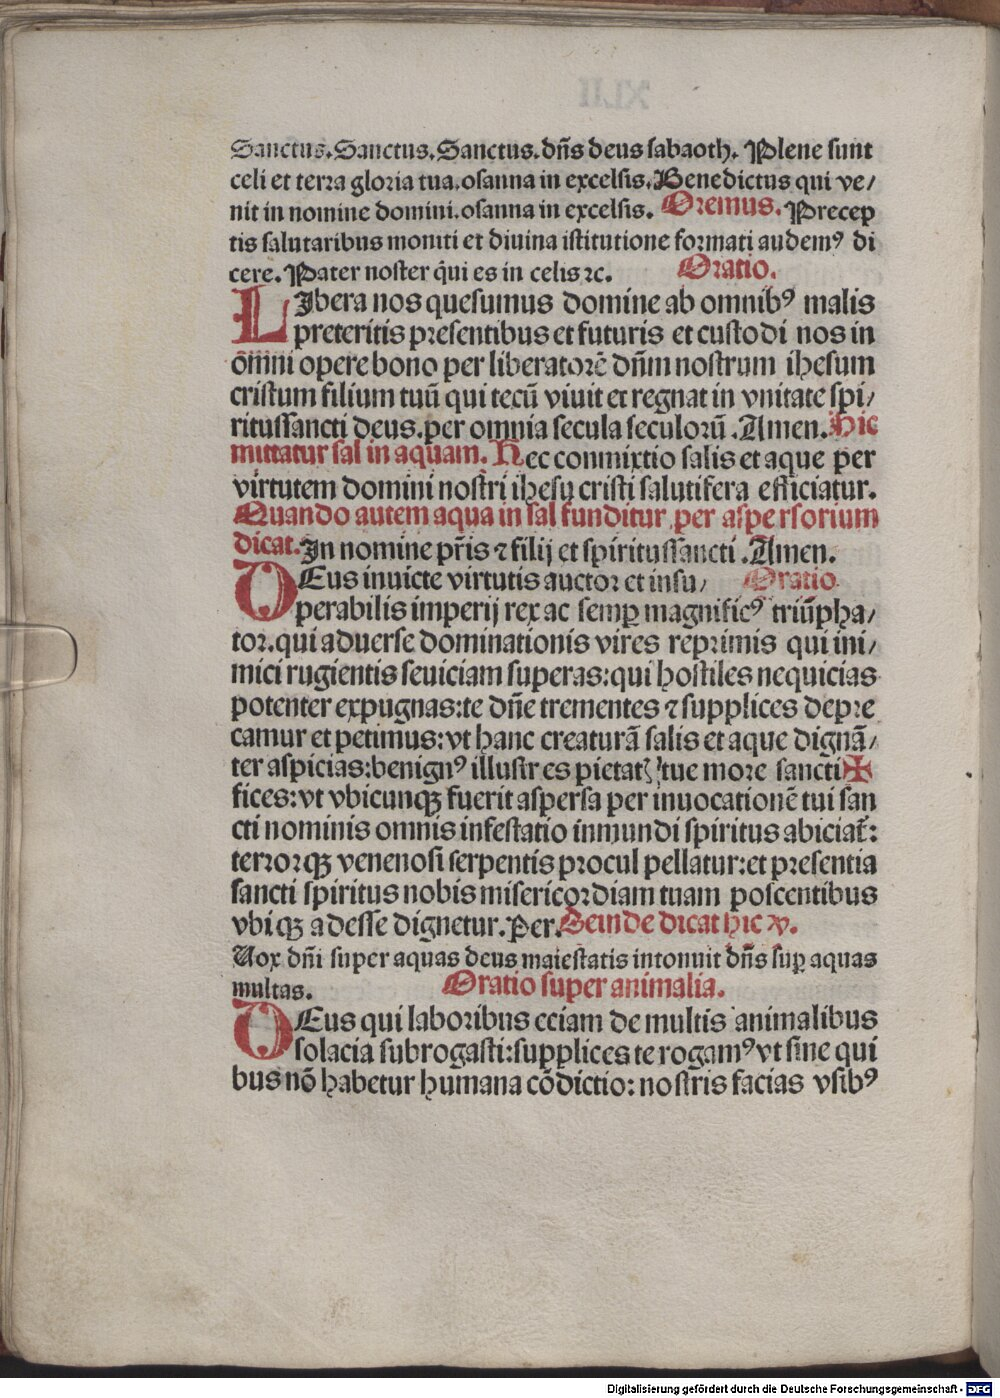 Sanctus. Sanctus. Sanctus. dñs deus sabaoth. Plene sunt
celi et terra gloria tua. osanna in excelsis. Benedictus qui ve/
nit in nomine domini. osanna in excelsis. Oremus. Precep
tis salutaribus moniti et diuina istitutione formati audemꝰ di
cere. Pater noster q̃ui es in celis ⁊c. Oratio.
LIbera nos quesumus domine ab omnibꝰ malis
preteritis presentibus et futuris et custodi nos in
omni opere bono per liberatorẽ dñm nostrum ihesum
cristum filium tuũ qui tecũ viuit et regnat in vnitate spi/
ritussancti deus. per omnia secula seculorũ. Amen. Hic
mittatur sal in aquam. Hec conmixtio salis et aque per
virtutem domini nostri ihesu cristi salutifera efficiatur.
Quando autem aqua in sal funditur per aspersorium
dicat. In nomine pr̃is ⁊ filij et spiritussancti. Amen.
DEus inuicte virtutis auctor et insu/ Oratio
perabilis imperij rex ac semꝑ magnificꝰ triũpha/
tor. qui aduerse dominationis vires reprimis qui ini/
mici rugientis seuiciam superas: qui hostiles nequicias
potenter expugnas: te dñe trementes ⁊ supplices depre
camur et petimus: vt hanc creaturã salis et aque dignã/
ter aspicias: benignꝰ illustres pietatꝭ tue more sancti✠
fices: vt vbicunqꝫ fuerit aspersa per inuocationẽ tui san
cti nominis omnis infestatio inmundi spiritus abiciat᷑:
terrorqꝫ venenosi serpentis procul pellatur: et presentia
sancti spiritus nobis misericordiam tuam poscentibus
vbiqꝫ adesse dignetur. Per. Deinde dicat hic ℣.
Uox dñi super aquas deus maiestatis intonuit dñs suꝑ aquas
multas. Oratio super animalia.
DEus qui laboribus eciam de multis animalibus
solacia subrogasti: supplices te rogamꝰ vt sine qui
bus nõ habetur humana cõdictio: nostris facias vsibꝰ
Digitalisierung gefördert durch die Deutsche Forschungsgemeinschaft - DFG